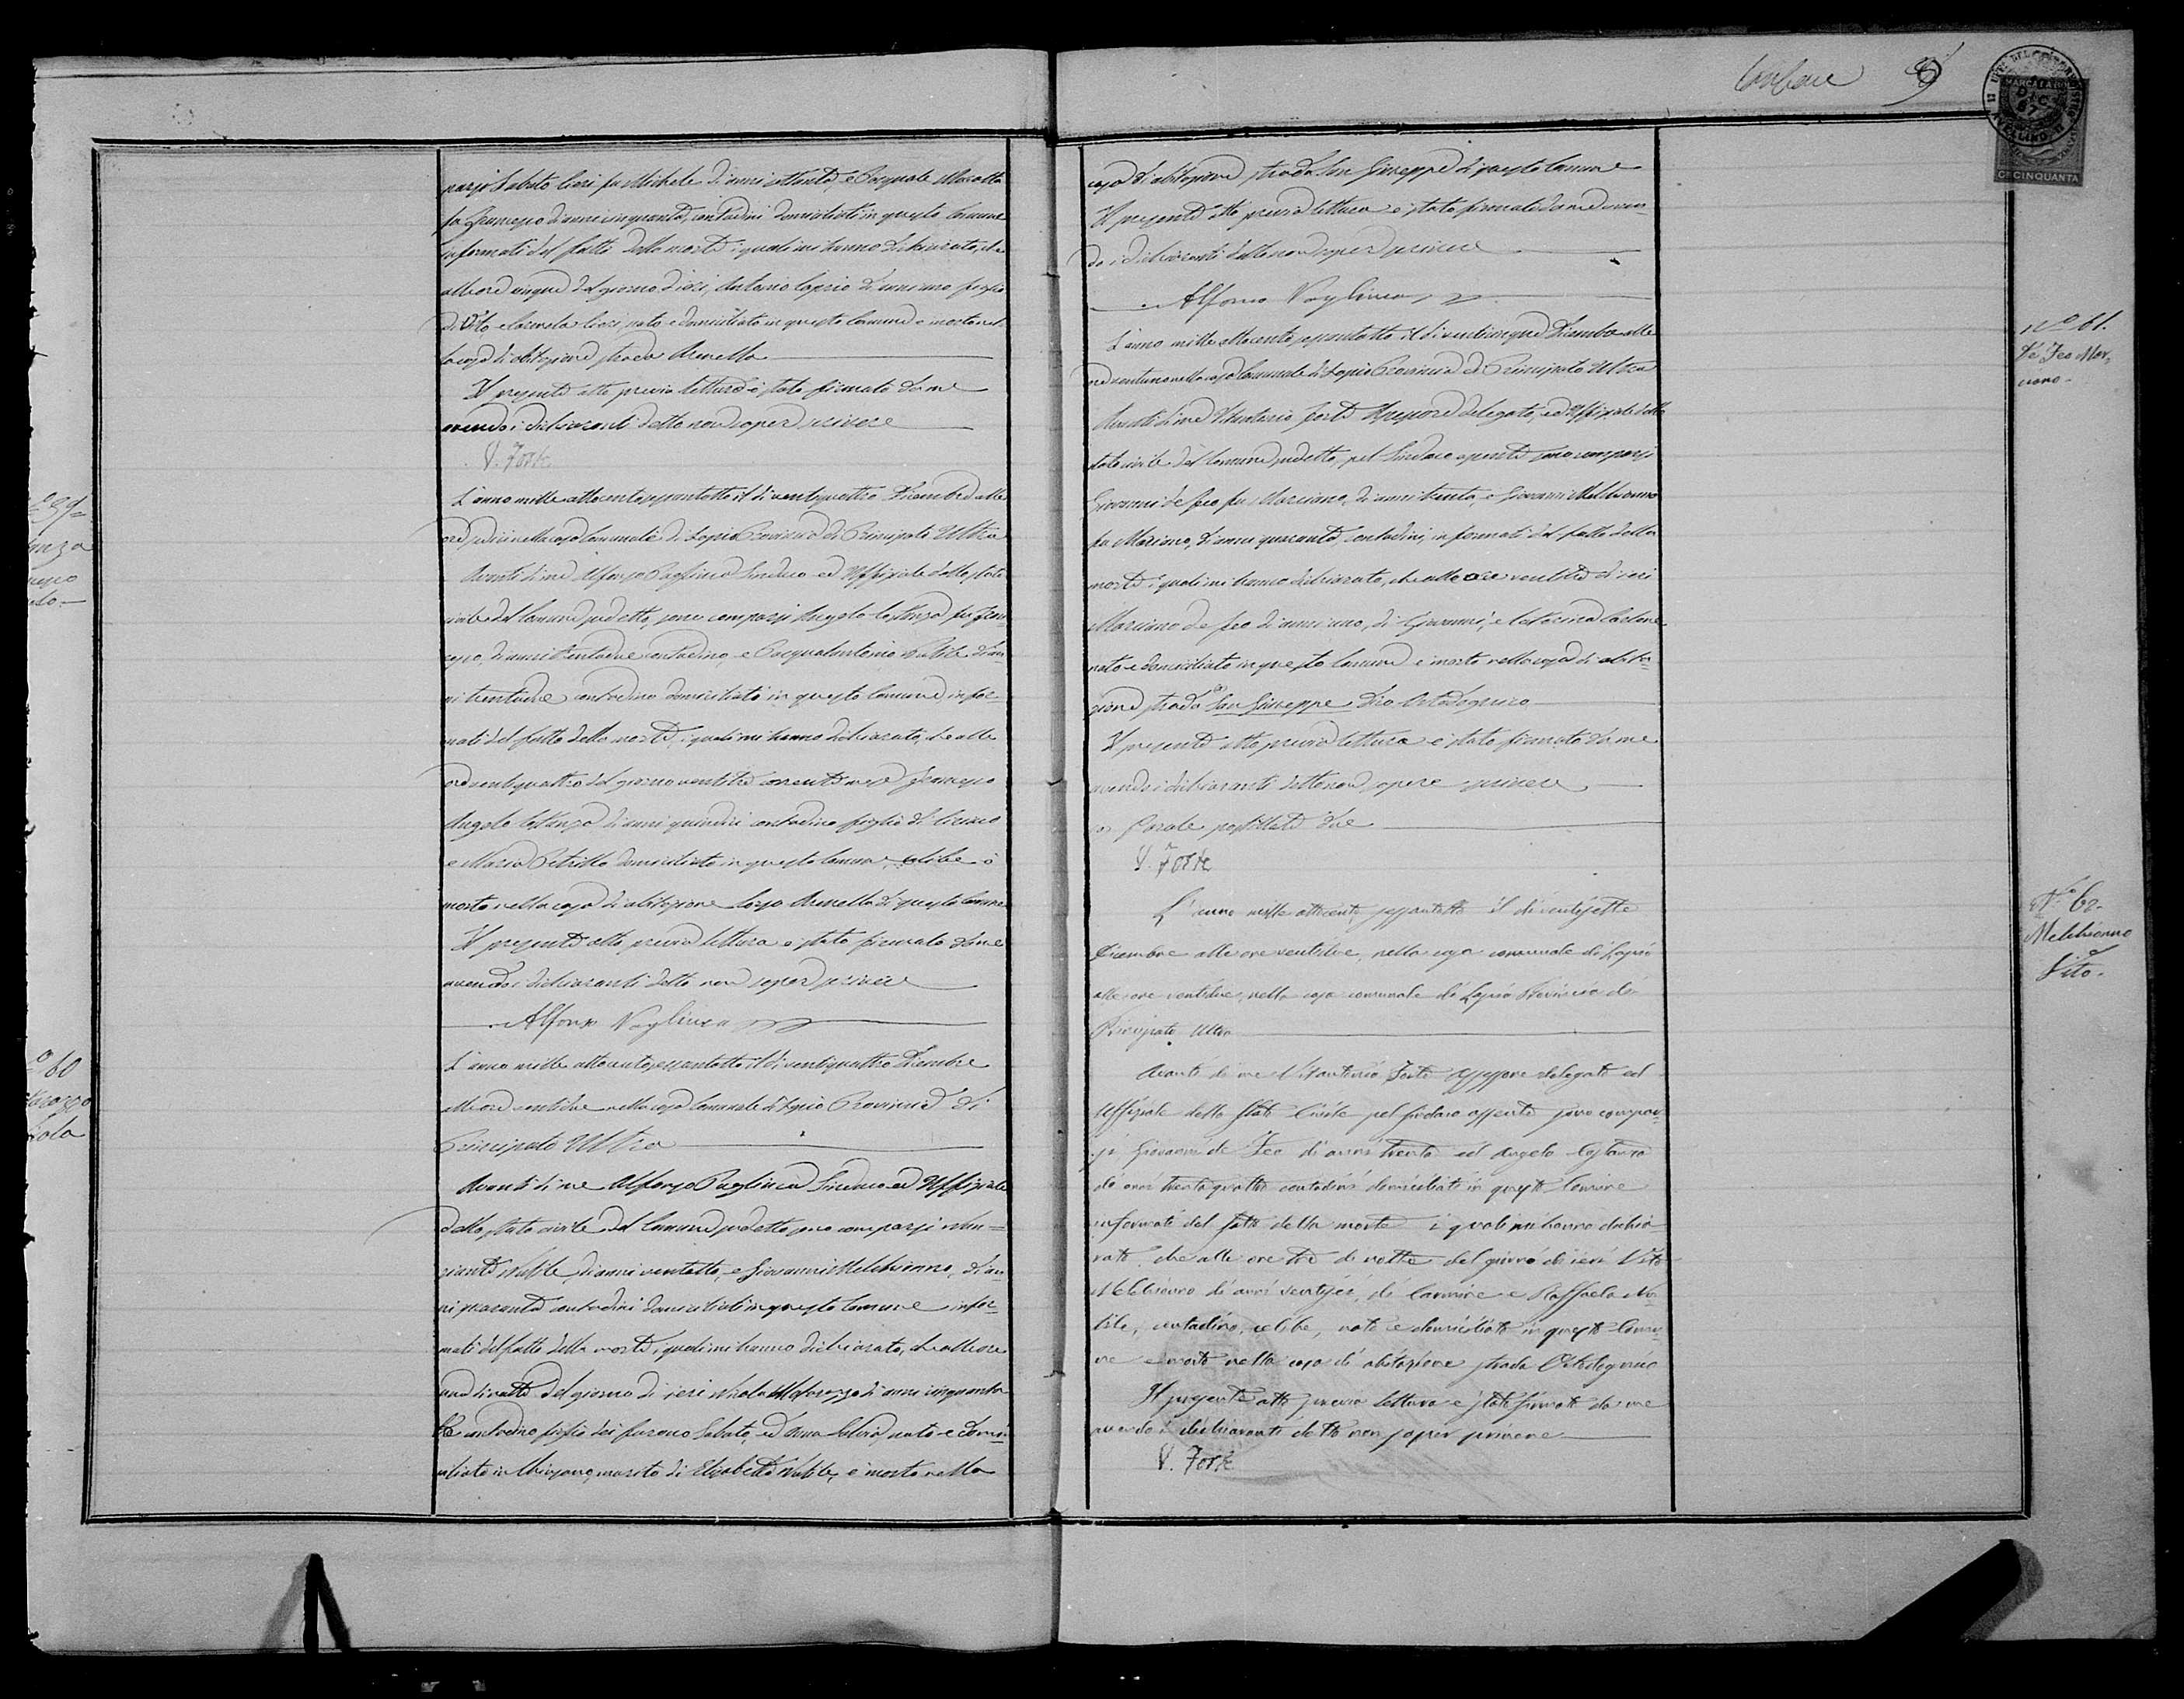 parsi Sabato Cieri fu Michele di anni ottanta, e Pasquale
fu Francesco di anni cinquanta, contadini domiciliati in questo Comune
informati del fatto della morte i quali mi hanno dichiarato, che
alle ore cinque del giorno di ieri, Antonio Caprio di anni uno figlio
di Vito e Carmela Cieri, nato e domiciliato in questo Comune è morto nel
la casa di abitazione strada Arenella
Il presente atto previa lettura è stato firmato da me
avendo i dichiaranti detto non saper scrivere
V. Forte
L'anno mille ottocento sessantotto il dì ventiquattro Dicembre alle
ore sedici nella casa Comunale di Lapio Provincia di Principato Ultra
Avanti di me Alfonso Paglinca Sindaco ed Uffiziale dello stato
civile del Comune sudetto, sono comparsi Angelo Costanza fu Fran=
cesco, di anni trentadue contadino, e Pasqualantonio Nobile di an=
ni trentadue contadino domiciliati in questo Comune infor=
mati del fatto della morte, i quali mi hanno dichiarato, che alle
ore ventiquattro del giorno ventitre corrente mese Francesco
Angelo Costanza di anni quindici contadino figlio di Ciriaco
e Maria Petrillo domiciliato in questo Comune, celibe è
morto nella casa di abitazione Largo Arenella di questo Comune
Il presente atto previa lettura è stato firmato da me
avendo i dichiaranti detto non saper scrivere
Alfonso Paglinca
L'anno mille ottocento sessantotto il dì ventiquattro Dicembre
alle ore ventidue nella casa Comunale di Lapio Provincia di
Principato Ultra
Avanti di me Alfonso Paglinca Sindaco ed Uffiziale
dello stato civile del Comune sudetto sono comparsi Nun=
ziante Nobile, di anni ventotto, e Giovanni Melchionno, di an=
ni quaranta contadini domiciliati in questo Comune infor=
mati del fatto della morte, i quali mi hanno dichiarato, che alle ore
una di notte del giorno di ieri Nicola di anni cinquanta
contadino figlio dei furono Sabato, ed Anna nato e domi=
ciliato in Chiusano, marito di Elisabetta Nobile, è morto nella
59
anza
esco
elo.
60
ola
9
CMI CINQUANTA
casa di abitazione strada San Giuseppe di questo Comune
Il presente atto previa lettura è stato firmato da me aven=
do i dichiaranti detto non saper scrivere
Alfonso Paglinca
L'anno mille ottocento sessantotto il dì venticinque Dicembre alle
ore ventuno nella casa Comunale di Lapio Provincia di Principato Ultra
Avanti di me Vitantonio Forte Assessore delegato, ed Uffiziale dello
stato civile del Comune sudetto, pel Sindaco assente sono comparsi
Giovanni de Feo fu Marciano, di anni trenta, e Giovanni Melchionno
fu Mariano, di anni quaranta, contadini, informati del fatto della
morte i quali mi hanno dichiarato, che alle ore ventitre di ieri
Marciano de Feo di anni uno, di Giovanni, e Caterina Carbone
nato e domiciliato in questo Comune è morto nella casa di abita=
zione strada San Giuseppe
Il presente atto previa lettura è stato firmato da me
avendo i dichiaranti detto non sapere scrivere
Parole postillate due
V. Forte
L'anno mille ottocento sessantotto il dì ventisette
Dicembre alle ore ventidue, nella casa comunale di Lapio
alle ore ventidue, nella casa comunale di Lapio Provincia di
Principato Ultra
Avanti di me Vitantonio Forte Assessore delegato ed
Uffiziale dello Stato Civile pel Sindaco assente sono compar=
si Giovanni de Feo di anni trenta ed Angelo Costanza
di anni trentaquattro contadini domiciliati in questo Comune
informati del fatto della morte i quali mi hanno dichia=
rato, che alle ore tre di notte del giorno di ieri Vito
Melchionno di anni ventisei, di Carmine e Raffaela No=
bile, contadino, celibe, nato e domiciliato in questo Comu=
ne è morto nella casa di abitazione strada
Il presente atto previa lettura è stato firmato da me
avendo i dichiaranti detto non saper scrivere
V. Forte
No 61.
De Feo Mar=
ciano.
No 62.
Melchionno
Vito.